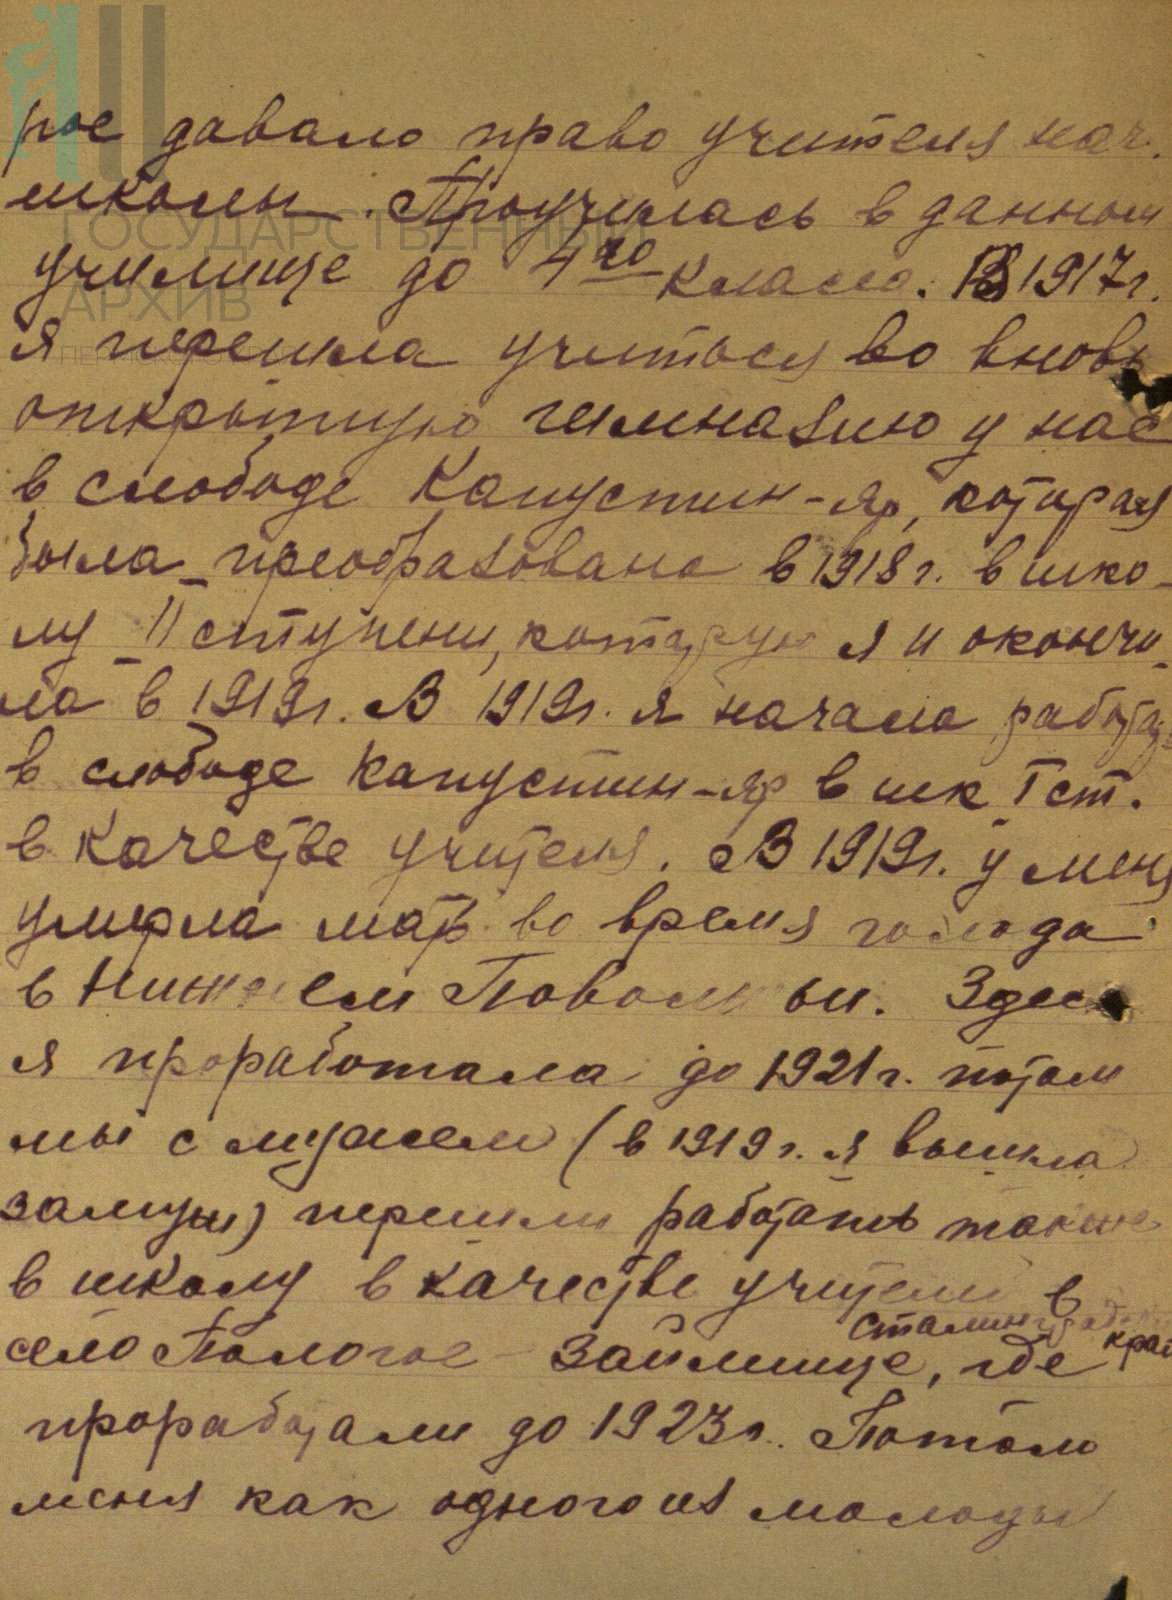 рое давало право учителя нач.
школы. Проучилась в данном
училище до 4го класса. В 1917г.
я перешла учиться во вновь
открытую гимназию у нас
в слободе Капустин-яр, которая
была преобразована в 1918г. в шко-
лу II ступени, которую я и окончи-
ла в 1919г. В 1919г. я начала работать
в слободе Капустин-яр в шк I ст.
в качестве учителя. В 1919г. у меня
умерла мать во время голода
в Нижнем Поволжьи. Здесь
я проработала до 1921г. потом
мы с мужем (в 1919г. я вышла
замуж) перешли работать также
в школу в качестве учителей в
Сталинградск. край
село Пологое Займище, где
проработали до 1923г. Потом
меня как одного из молодых
ГОСУДАРСТВЕННЫЙ
АРХИВ